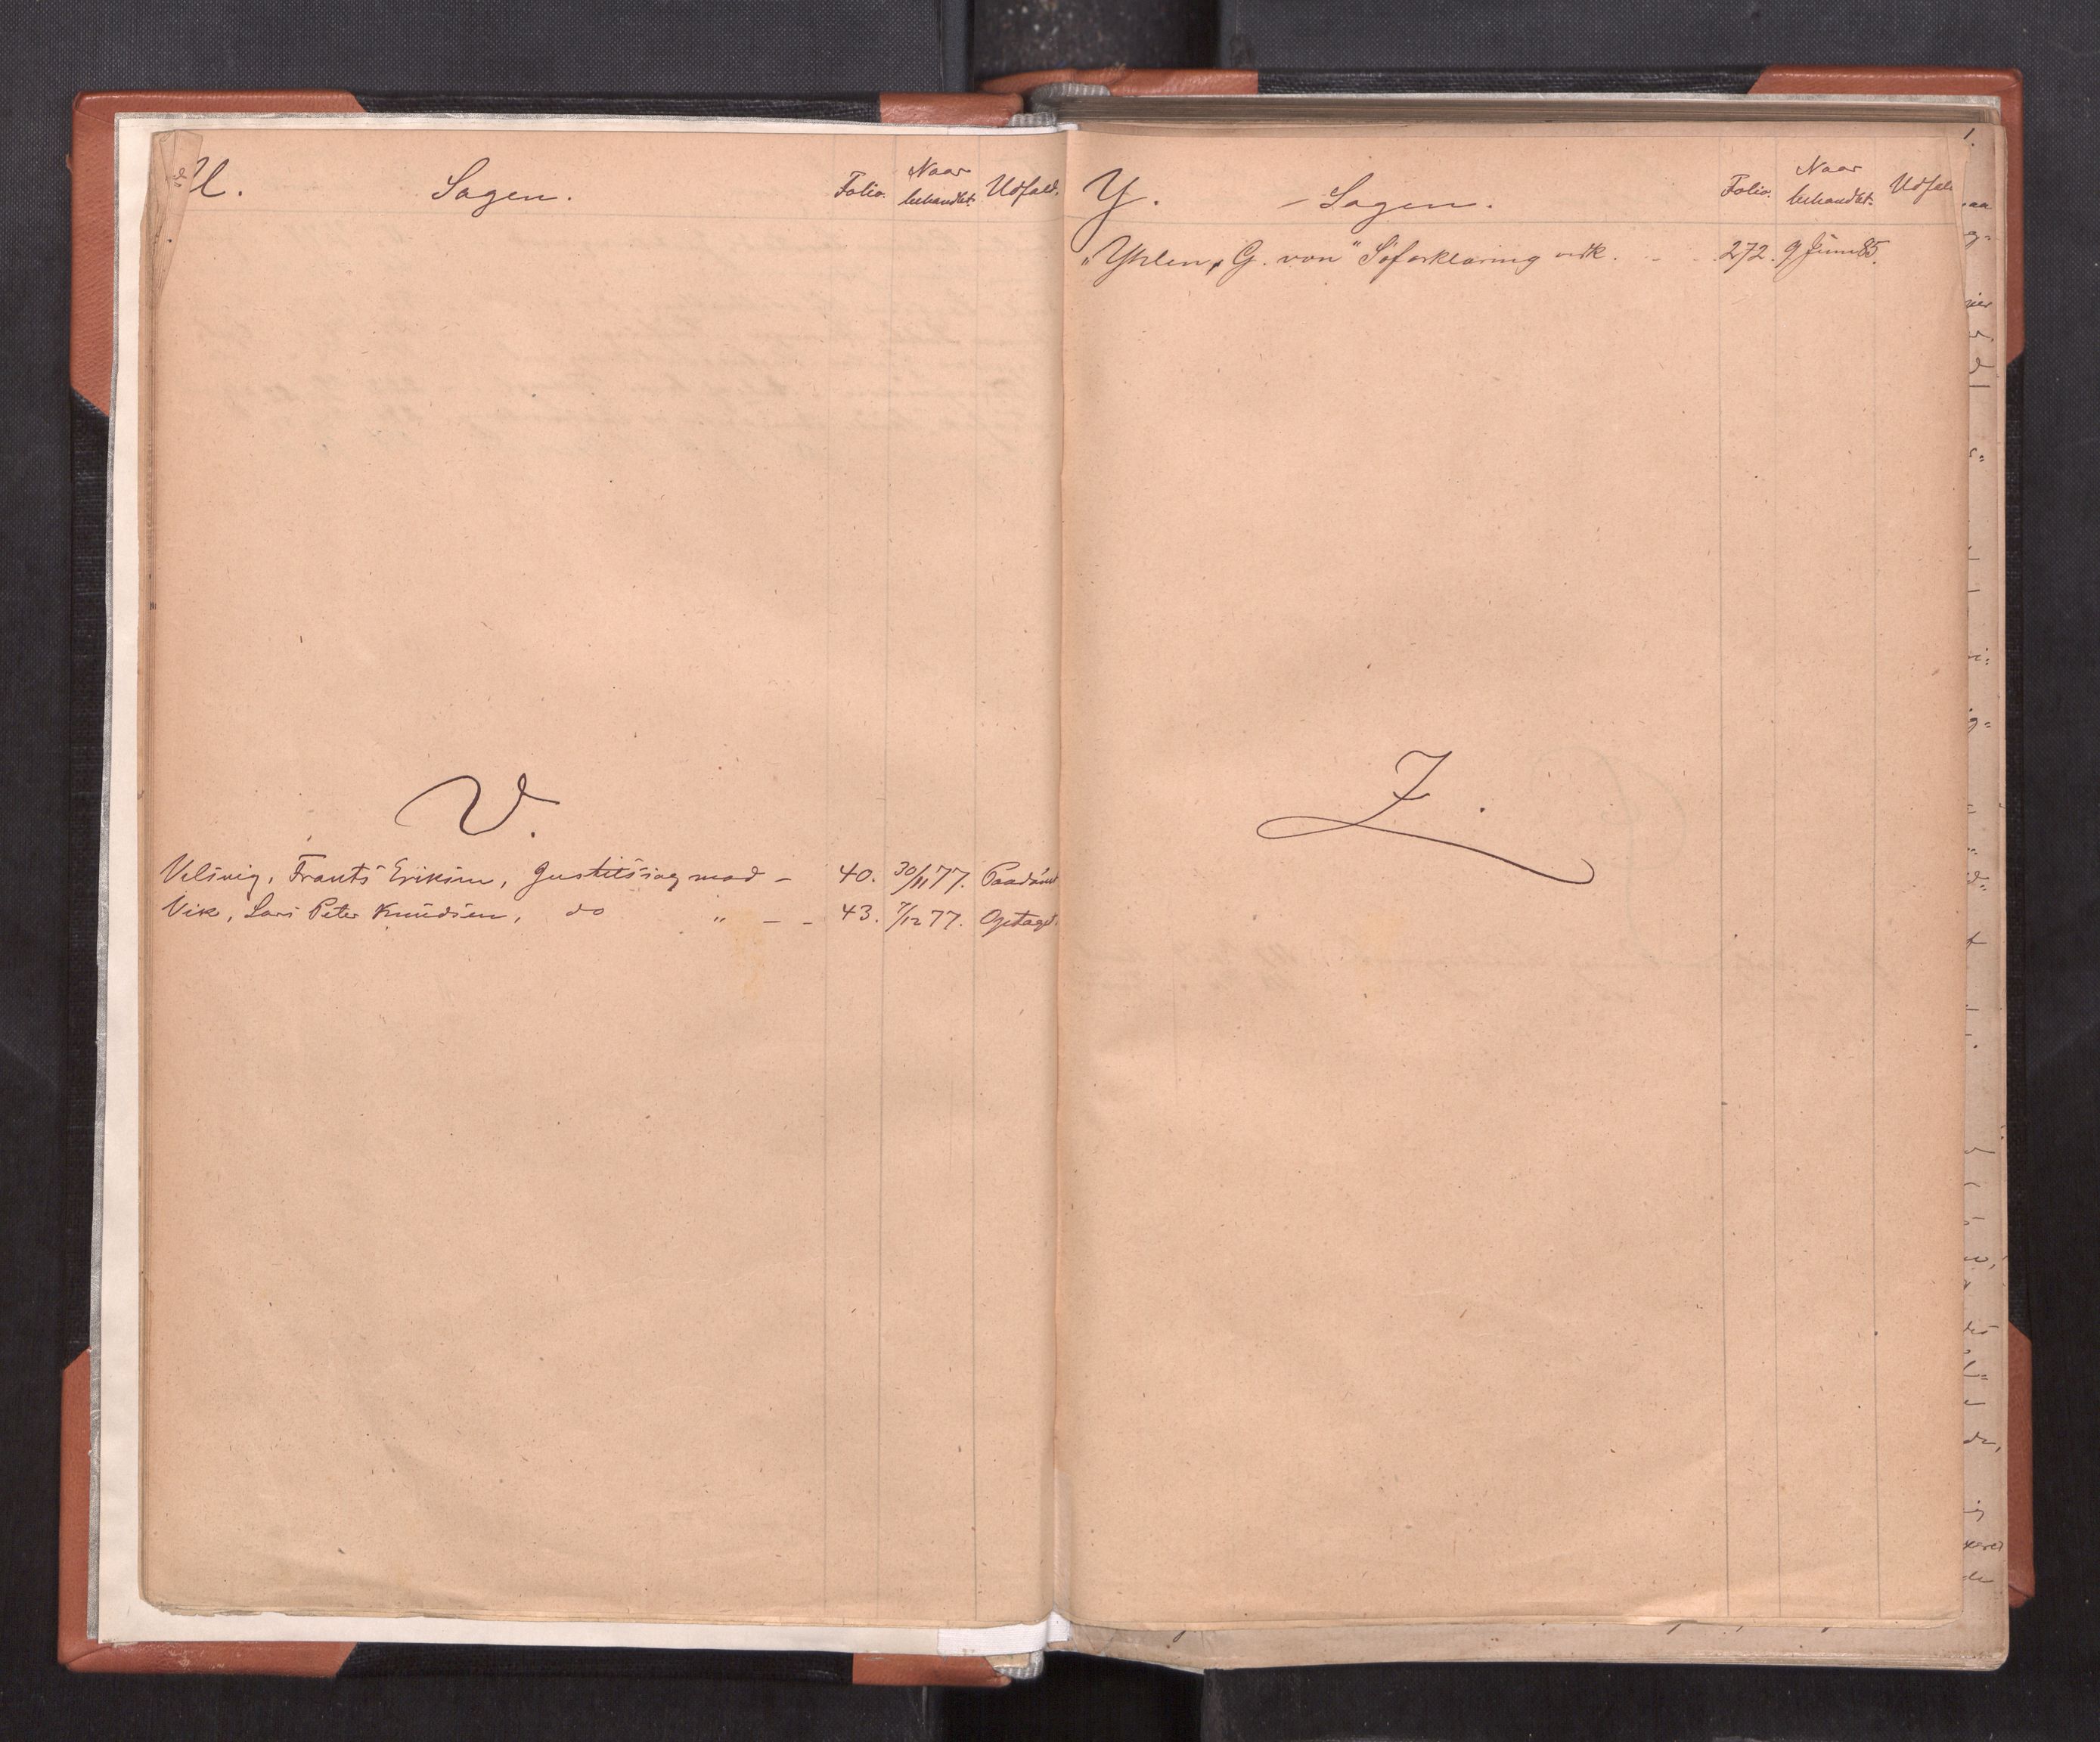 U. Sagen. Folio. Naar behandlet. Udfald.
V.
Velsvig, Frants Eriksen, Justitssag mod — 40. 30/11 77. Paadömt
Vik, Lars Peter Knudsen, do " — — 43. 7/12 77. Optaget.
Y. Sagen. Folio. Naar behandlet. Udfald
"Yhlen, G. von" Söforklaring vedk. 272. 9 Juni 85.
Z.
1.